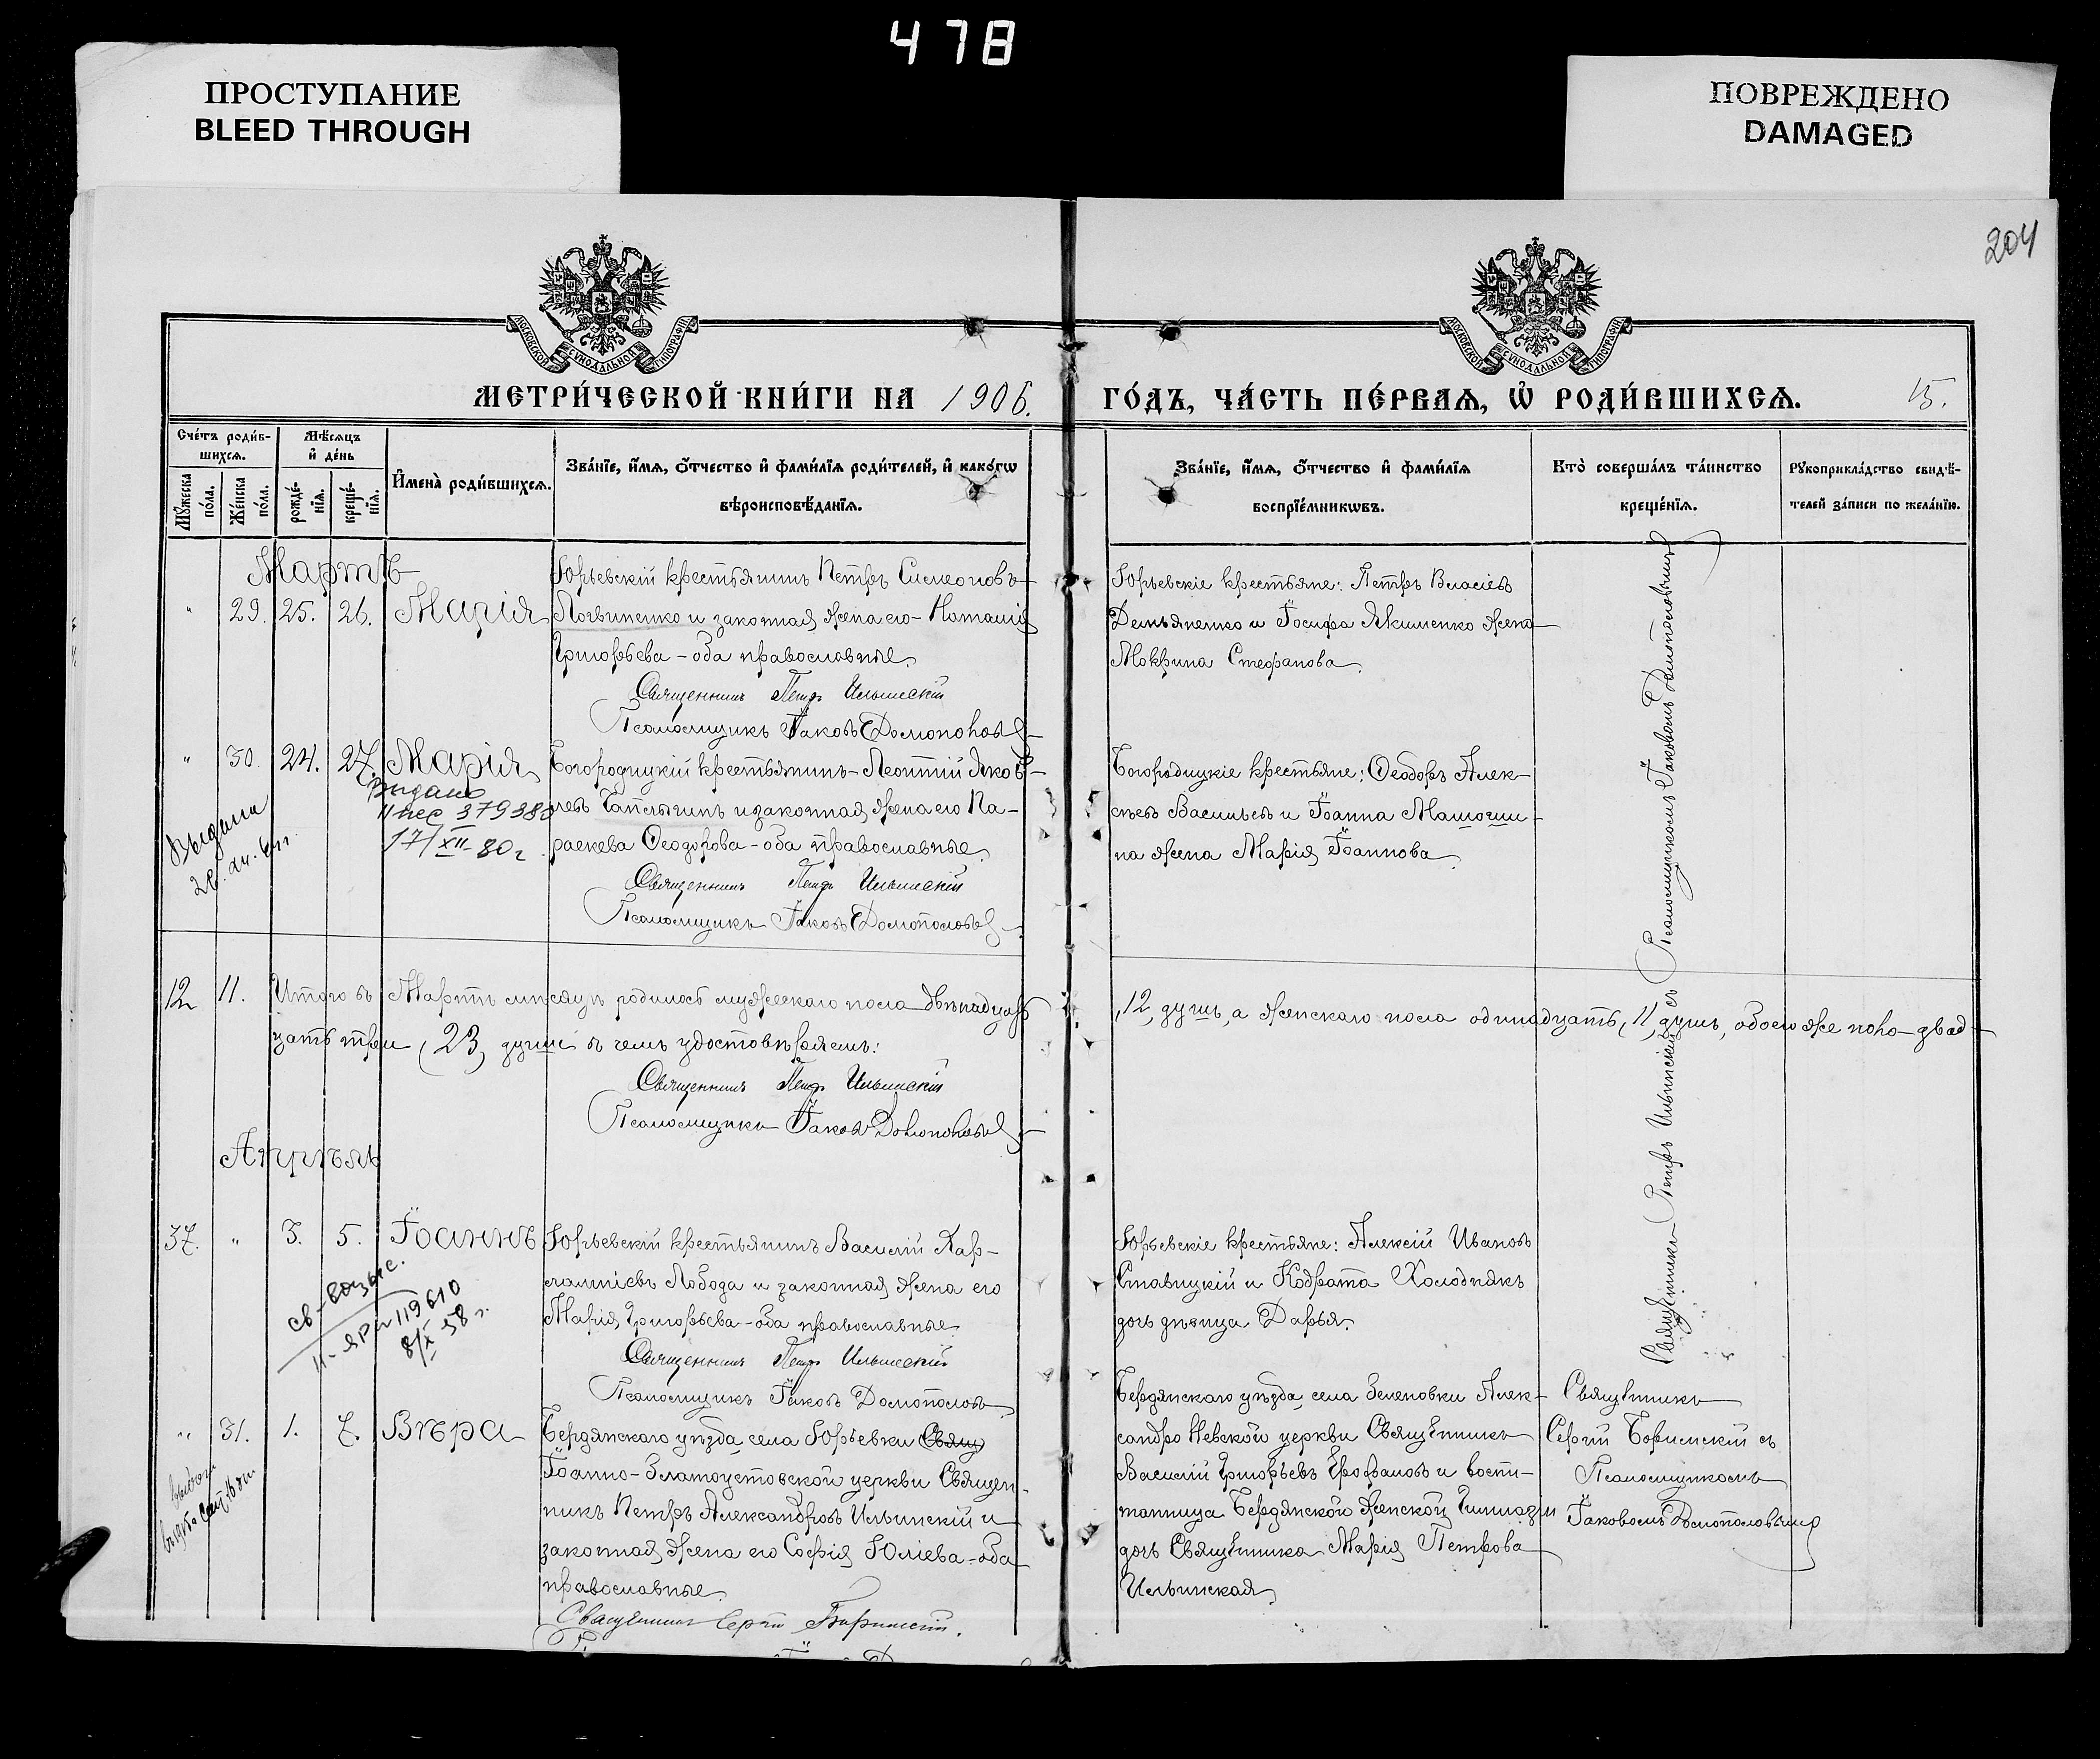 478
ПРОСТУПАНИЕ
BLEED THROUGH
ПОВРЕЖДЕНО
DAMAGED
204
МОСКОВСКОЙ СУНОДАЛЬНОЙ ТИПОГРАФІИ
МОСКОВСКОЙ СУНОДАЛЬНОЙ ТИПОГРАФІИ
МЕТРИ́ЧЕСКОЙ КНИ́ГИ НА 1906.
ГО́ДЪ, ЧА́СТЬ ПЕ́РВАѦ, Ѡ҆ РОДИ́ВШИХСѦ. 15.
Сче́тъ роди́в-
шихсѧ.
Мꙋжеска по́ла.
Же́нска по́ла.
Мѣ́сѧцъ
и҆ де́нь
рожде́-
нїѧ.
креще́-
нїѧ.
И҆мена̀ роди́вшихсѧ.
Зва́нїе, и҆́мѧ, ѻ҆́тчество и҆ фами́лїѧ роди́телей, и҆ како́гѡ
вѣроисповѣ́данїѧ.
Зва́нїе, и҆́мѧ, ѻ҆́тчество и҆ фами́лїѧ
воспрїе́мникѡвъ.
Кто̀ соверша́лъ та́инство
креще́нїѧ.
Рꙋкоприкла́дство свидѣ́-
телей за́писи по жела́нїю.
Мартъ
" 29. 25. 26. Марія
Юрьевскій крестьянинъ Петръ Симеоновъ
Логвиненко и законная жена его - Наталія
Григорьева - оба православные.
Священникъ Петръ Ильинскій
Псаломщикъ Іаковъ Домополовъ
Юрьевскіе крестьяне: Петръ Власіевъ
Демьяненко и Іосифа Якименко жена
Мокрина Стефанова.
" 30. 24. 27. Марія
Богородицкій крестьянинъ - Леонтій Яков-
левъ и законная жена его Па-
раскева Ѳеодорова - оба православные.
Священникъ Петръ Ильинскій
Псаломщикъ Іаковъ Домополовъ
Выдано
379380
17/XII-80г.
Выдана
Богородицкіе крестьяне: Ѳеодоръ Алек-
сѣевъ Васильевъ и Іоанна
на жена Марія Іоаннова.
12 11. Итого въ Мартѣ мѣсяцѣ родилось мужескаго пола двѣнадцать
,12, душъ, а женскаго пола одинадцать, 11, душъ, обоего же пола - двад-
цать три ,23, души въ чемъ удостовѣряемъ:
Священникъ Петръ Ильинскій
Псаломщикъ Іаковъ Домополовъ
Священникъ Петръ Ильинскій съ Псаломщикомъ Іаковомъ Домополовымъ
Апрѣль
37. " 3. 5. Іоаннъ
Юрьевскій крестьянинъ Василій Хар-
лампіевъ Лобода и законная жена его
Марія Григорьева - оба православные.
Священникъ Петръ Ильинскій
Псаломщикъ Іаковъ Домополовъ
119610
8/X-58г.
Юрьевскіе крестьяне: Алексій Ивановъ
Ставицкій и Кодрата Холоднякъ
дочь дѣвица Дарья.
" 31. 1. 7. Вѣра
Бердянскаго уѣзда, села Юрьевки Свящ
Іоанно-Златоустовской церкви Священ-
никъ Петръ Александровъ Ильинскій и
законная жена его Софія Юліева - оба
православные.
Священникъ Сергій
Бердянскаго уѣзда, села Зеленовки Алек-
сандро Невской церкви Священникъ
Василій Григорьевъ и воспи-
танница Бердянской женской Гимназіи
дочь Священника Марія Петрова
Ильинская.
Священникъ
Сергій съ
Псаломщикомъ
Іаковомъ Домополовымъ